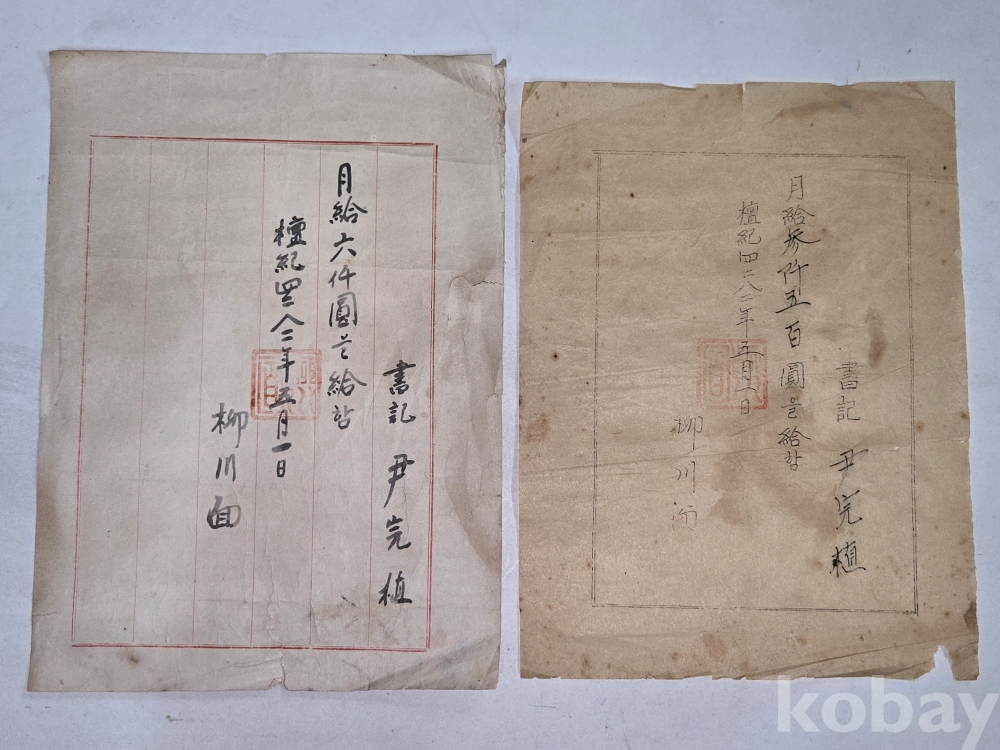 書記 尹完植
月給六仟圓을給함
檀紀四二八二年五月一日
柳川面
書記 尹完植
月給参仟五百圓을給함
檀紀四二八二年五月一日
柳川面
kobay